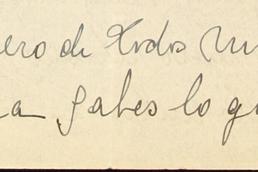 ero de Todos mi
a sabes lo qu